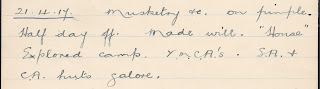 21.4.17. Musketry &c. on pimple.
Half day off. Made will. "House"
Explored camp. Y.M.C.A's. S.A. &
C.A. huts galore.